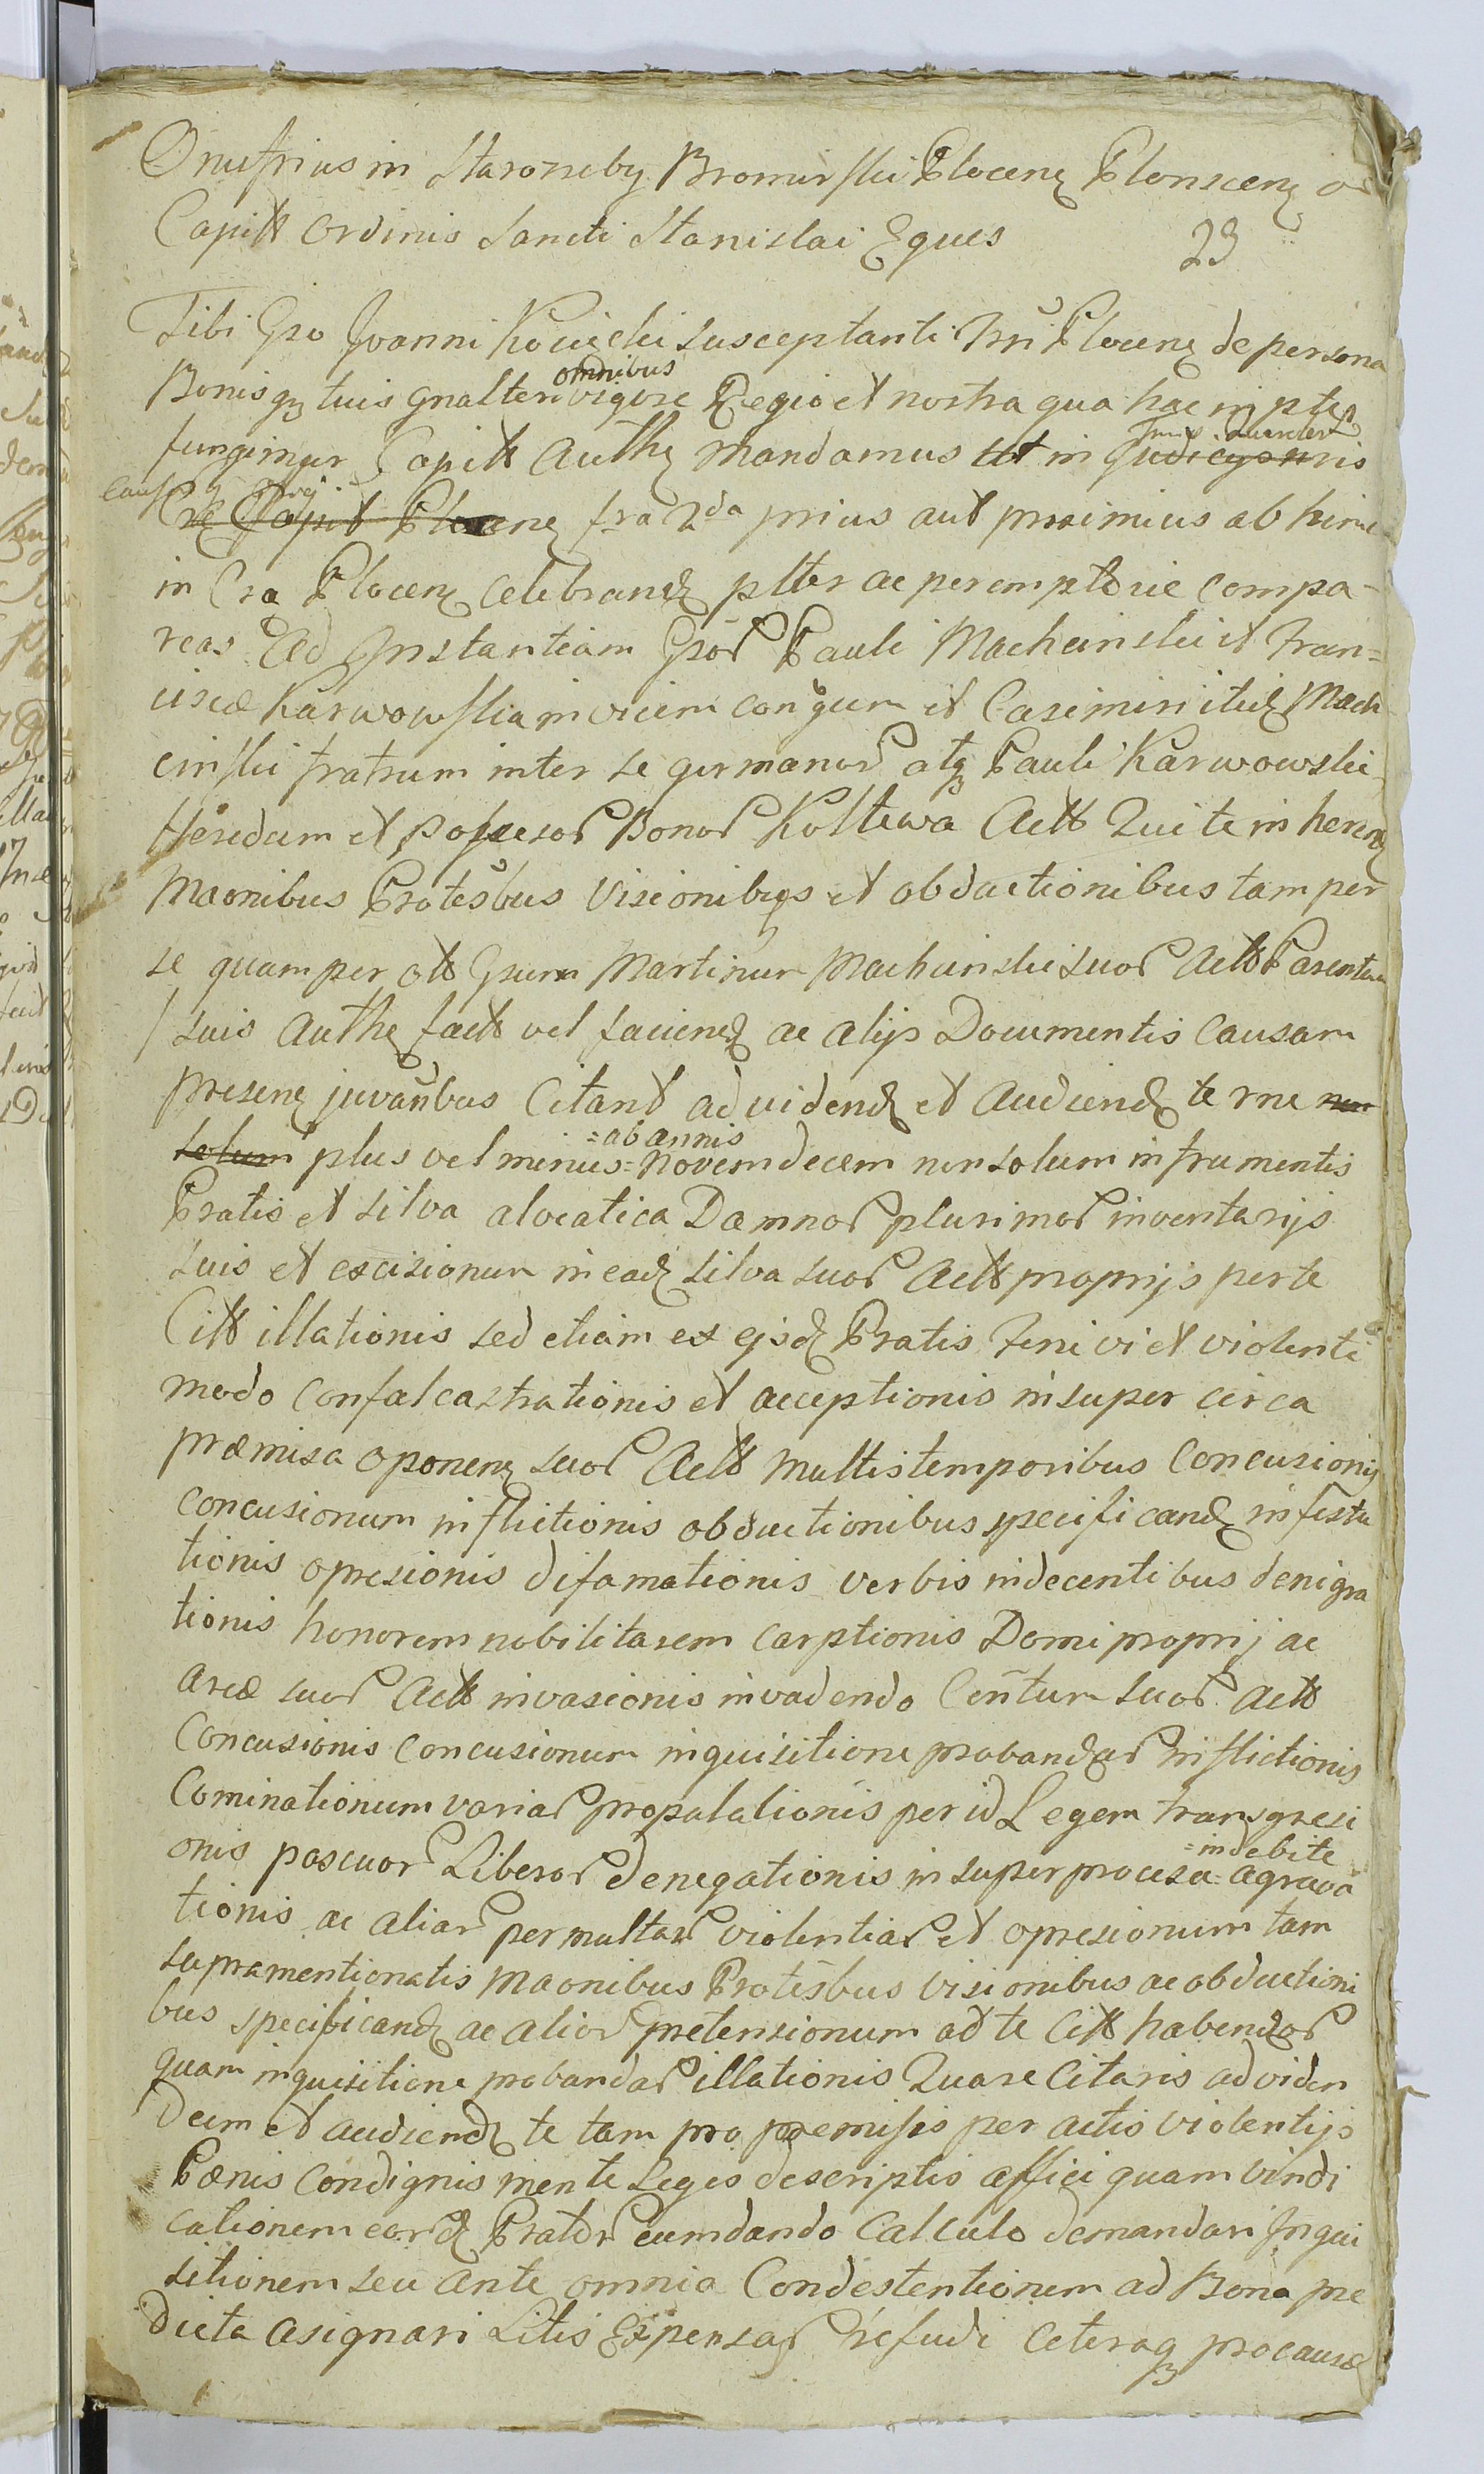 Onufrius in Starorzeby Bromirski Plocen Plonscen
Capitt Ordinis Sancti Stanislai Eques
23
Tibi Gso Joanni Kocięcki susceptanti Plocen de persona
omnibus
Bonisq tuis gnalter vigore Regio et nostra qua hac in pte
fungimur Capitt Authe mandamus ut in Judicys nris
Cre Capit Plocen fra 2da prius aut proximius ab hinc
in Cra Plocen celebrand plter ac peremptorie compa-
reas Ad Instantiam Gsor Pauli Machcinski et Fran=
ciscæ Karwowska invicem congum et Casimiri itid Mach
cinski fratrum inter se germanor atq Pauli Karwowski
Heredum et possesor Bonor Koltewa Actt Qui te in heren
Maonibus Protesbus Visionibus et obductionibus tam per
se quam per ott Gsum Martinum Machcinski suor Actt Parentem
suis Authe factt vel faciend ac alijs Documentis causam
presen juvanbus Citant ad videnđ et Audiend te rne non
solum plus vel minus =ab annis= Novemdecem non solum in frumentis
Pratis et silva alveatica Damnor plurimor inventarijs
suis et excisionum in ead silva suor Actt proprijs per te
Citt illationis sed etiam ex ejsd Pratis Feni vi et violenti
modo confalcastrationis et acceptionis insuper circa
præmisa oponen suor Actt multis temporibus Concusionis
concusionum inflictionis obductionibus specificand infesta
tionis opresionis difamationis verbis indecentibus denigra
tionis honorem nobilitarem carptionis Domi proprij ac
areæ suor Actt invasionis invadendo Centum suor Actt
Concusionis concusionum inquisitione probandar inflictionis
Cominationum variar propalationis per id Legem transgresi
onis pascuor Liberor denegationis insuper procesu =indebite= agrava
tionis ac aliar permultar violentiar et opresionum tam
supramentionatis Maonibus Protesbus Visionibus ac obductioni
bus specificand ac alior pretensionum ad te Citt habendor
quam inquisitione probandar illationis Quare Citaris ad viden
dum et audiend te tam pro premissis per actis violentijs
Pænis condignis mente Leges descriptis affici quam vindi
cationem eord Prator eumdando Calculo demandari Inqui
sitionem seu ante omnia Condestentionem ad Bona pre
dicta asignari Litis Expensas refudi ceteraq pro causæ